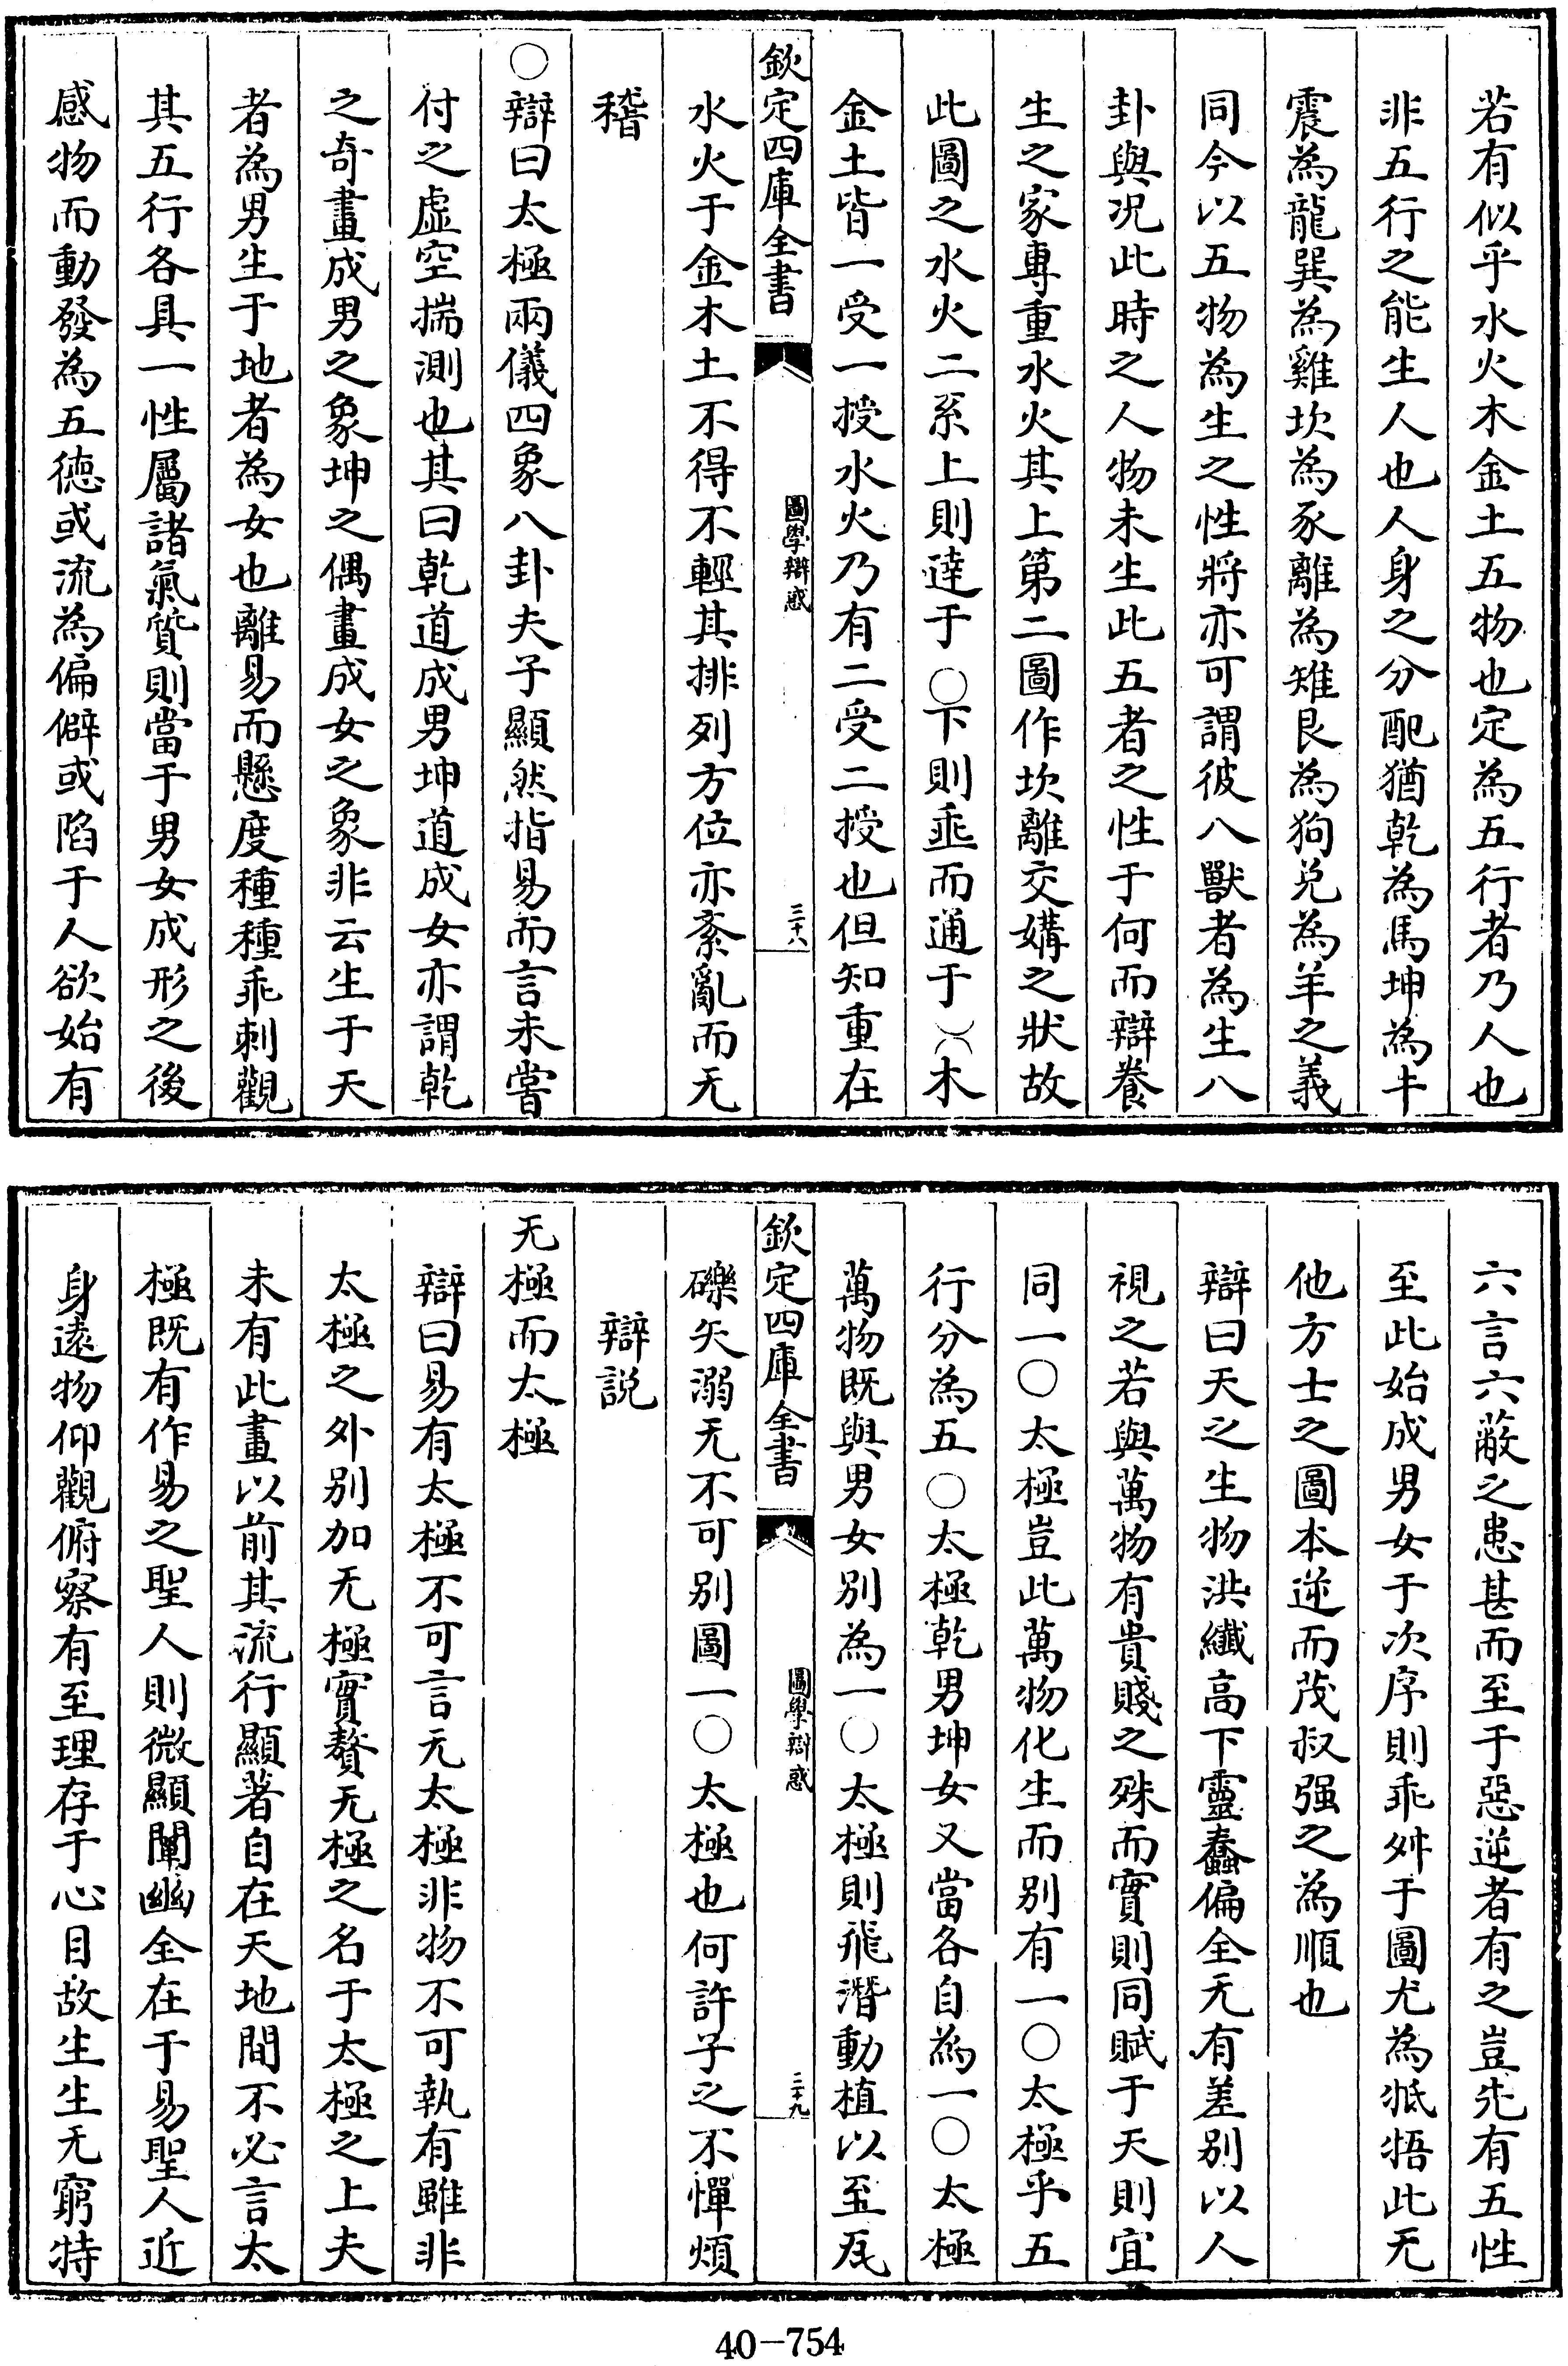 若有似乎水火木金土五物也定為五行者乃人也
非五行之能生人也人身之分配猶乾為馬坤為牛
震為龍巽為雞坎為豕離為雉艮為狗兌為羊之義
同今以五物為生之性將亦可謂彼八獸者為生八
卦與况此時之人物未生此五者之性于何而辯養
生之家專重水火其上第二圖作坎離交媾之狀故
此圖之水火二系上則達于〇下則埀而通于)(木
金土皆一受一授水火乃有二受二授也但知重在
欽定四庫全書
圖學辯惑
三十八
水火于金木土不得不輕其排列方位亦紊亂而无
稽
〇辯曰太極兩儀四象八卦夫子顯然指易而言未嘗
付之虛空揣測也其曰乾道成男坤道成女亦謂乾
之奇畫成男之象坤之偶畫成女之象非云生于天
者為男生于地者為女也離易而懸度種種乖刺觀
其五行各具一性屬諸氣質則當于男女成形之後
感物而動發為五德或流為偏僻或陷于人欲始有
六言六蔽之患甚而至于惡逆者有之豈先有五性
至此始成男女于次序則乖舛于圖尤為牴牾此无
他方士之圖本逆而茂叔强之為順也
辯曰天之生物洪纖高下靈蠢偏全无有差别以人
視之若與萬物有貴賤之殊而實則同賦于天則宜
同一〇太極豈此萬物化生而别有一〇太極乎五
行分為五〇太極乾男坤女又當各自為一〇太極
萬物既與男女别為一〇太極則飛潛動植以至瓦
欽定四庫全書
圖學辯惑
三十九
礫矢溺无不可别圖一〇太極也何許子之不憚煩
辯説
无極而太極
辯曰易有太極不可言无太極非物不可執有雖非
太極之外别加无極實贅无極之名于太極之上夫
未有此畫以前其流行顯著自在天地間不必言太
極既有作易之聖人則微顯闡幽全在于易聖人近
身遠物仰觀俯察有至理存于心目故生生无窮特
40-754